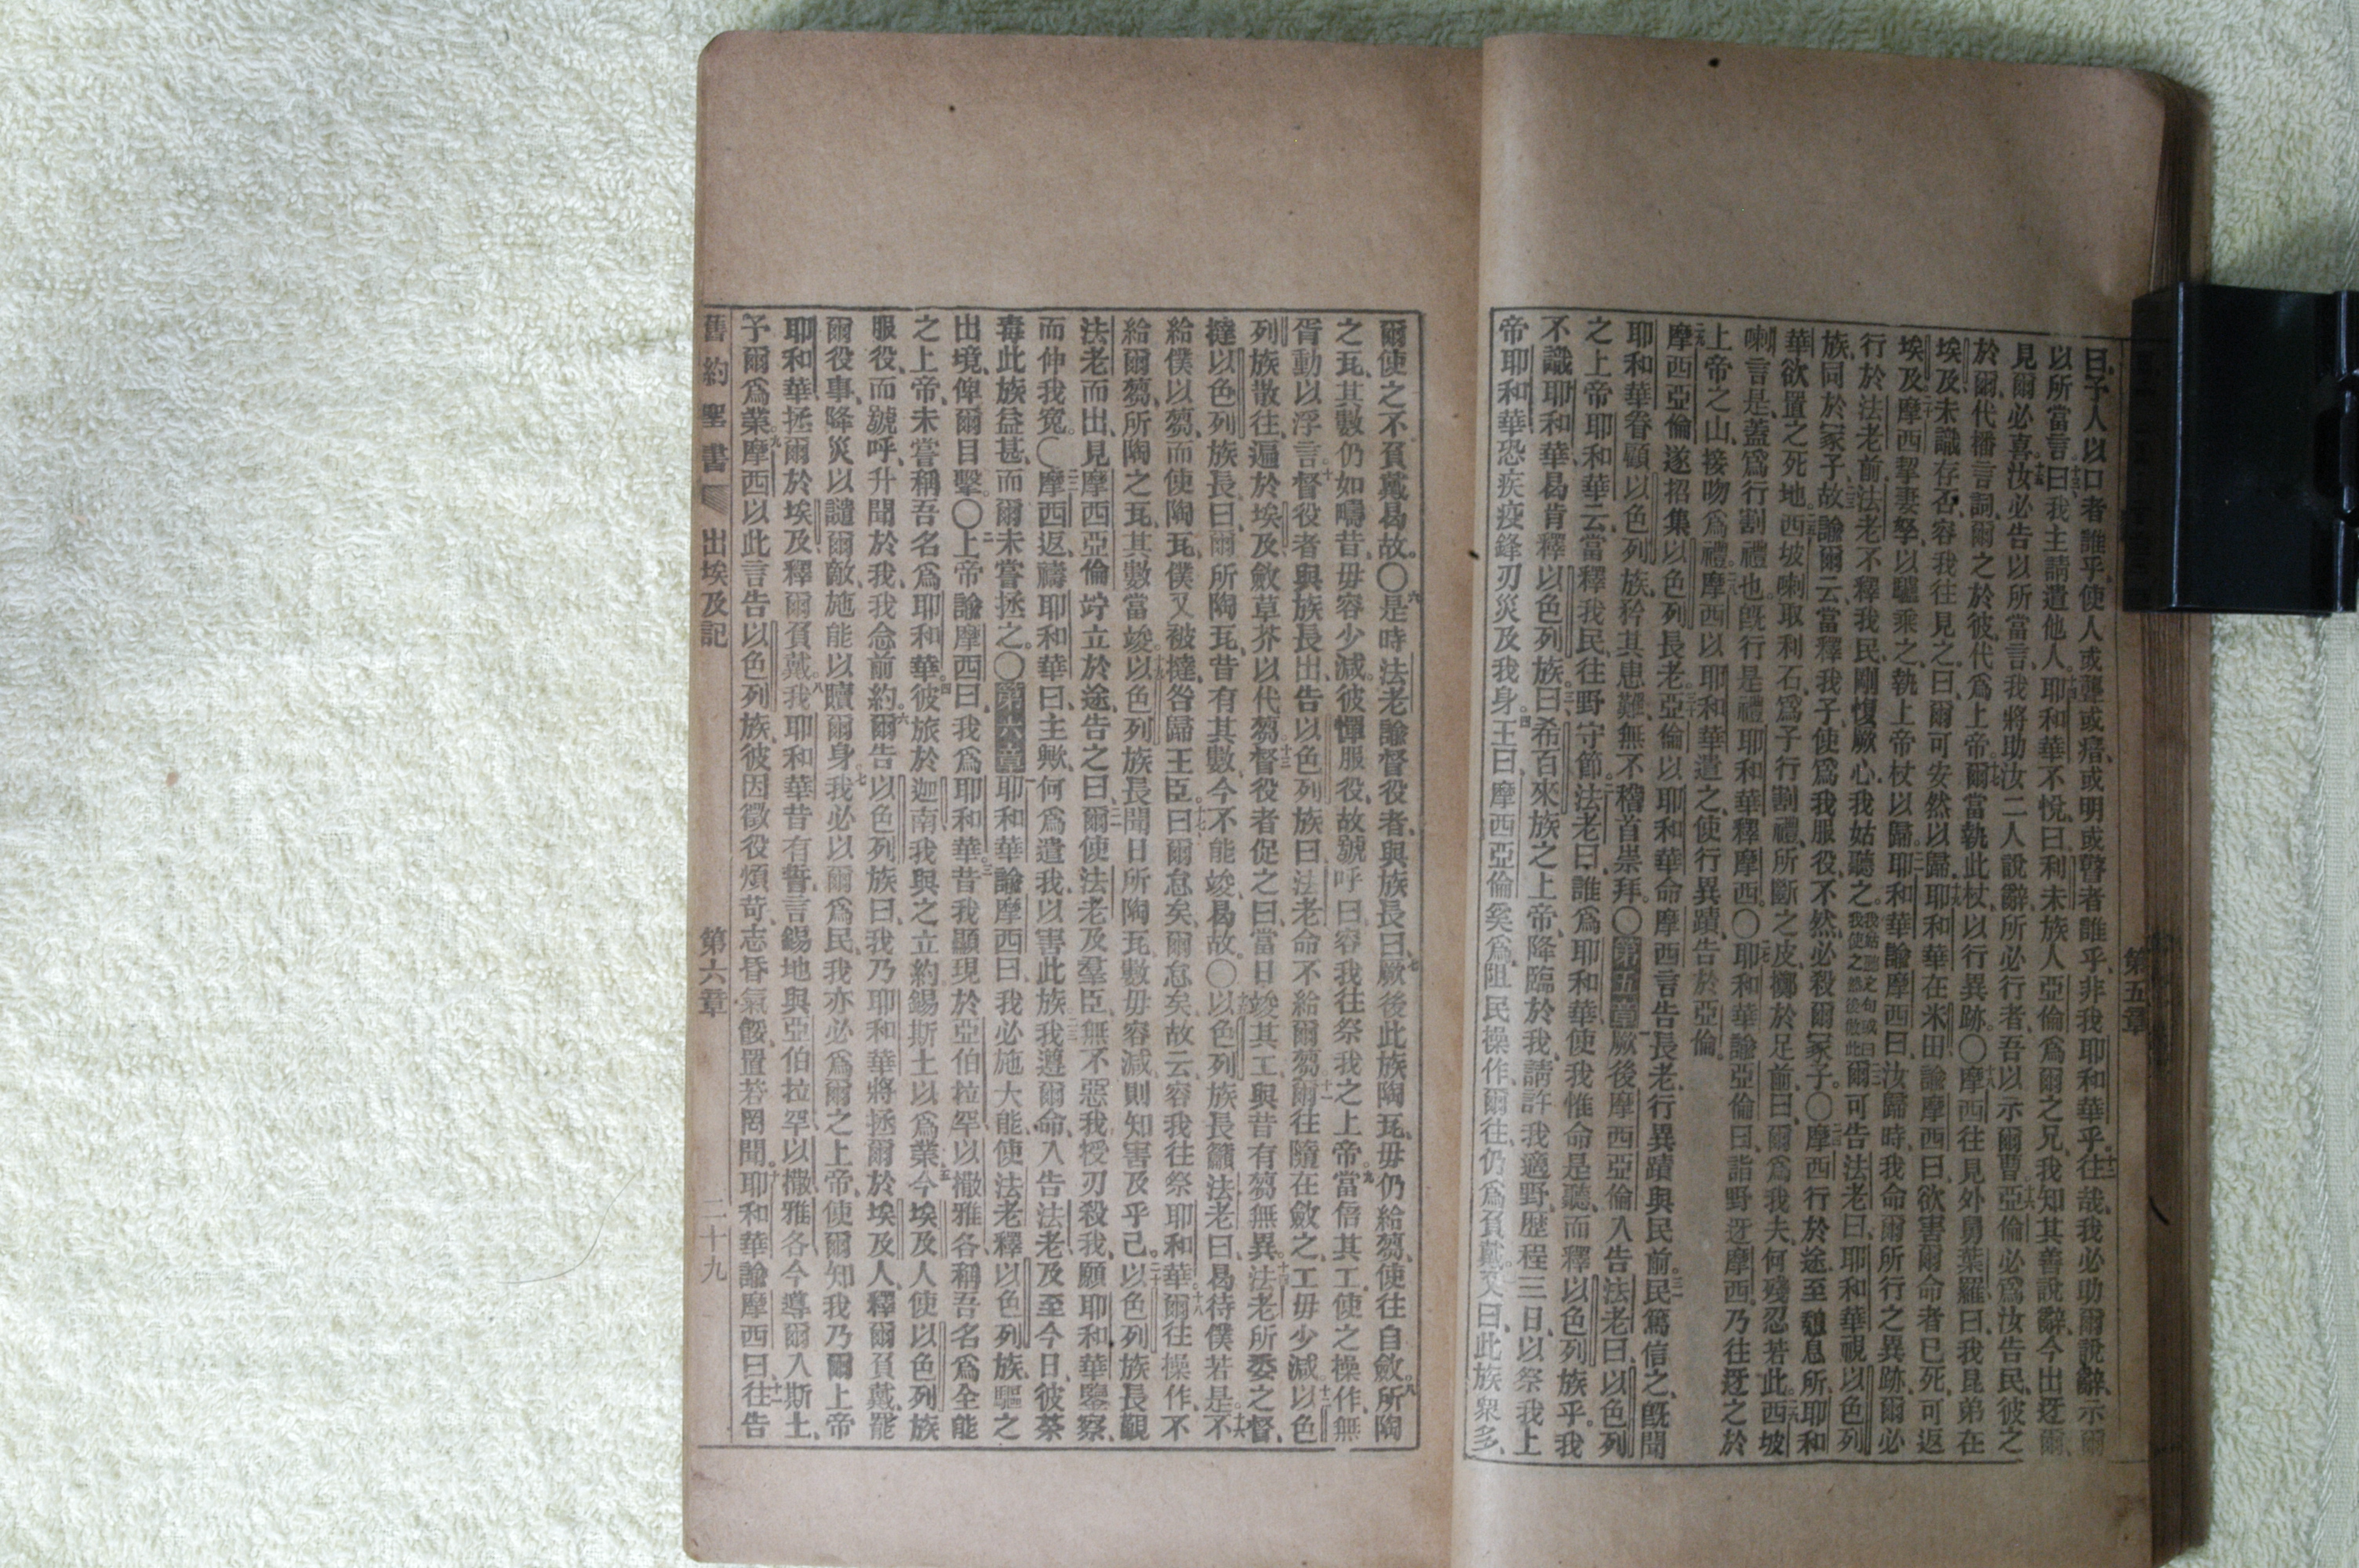 曰、予人以口者誰乎、使人或聾或瘖或明或瞽者誰乎、非我耶和華乎。十二往哉、我必助爾說辭、示爾
以所當言。十三曰、我主請遣他人。十四耶和華不悅、曰、利未族人亞倫爲爾之兄、我知其善說辭、今出迓爾、
見爾必喜。十五汝必告以所當言、我將助汝二人說辭、所必行者、吾以示爾曹。十六亞倫必爲汝告民、彼之
於爾、代播言詞、爾之於彼、代爲上帝。十七爾當執此杖、以行異跡。〇十八摩西往見外舅葉羅曰、我昆弟在
埃及、未識存否、容我往見之、曰、爾可安然以歸。十九耶和華在米田諭摩西曰、欲害爾命者已死、可返
埃及。二十摩西挈妻孥、以驢乘之、執上帝杖以歸。二一耶和華諭摩西曰、汝歸時、我命爾所行之異跡、爾必
行於法老前、法老不釋我民、剛愎厥心、我姑聽之。我姑聽之句或曰我使之然後倣此二二爾可告法老曰、耶和華視以色列
族、同於冢子、二三故諭爾云、當釋我子、使爲我服役、不然、必殺爾冢子。〇二四摩西行於途、至憩息所、耶和
華欲置之死地。二五西坡喇取利石、爲子行割禮、所斷之皮、擲於足前、曰、爾爲我夫、何殘忍若此。二六西坡
喇言是、蓋爲行割禮也。旣行是禮、耶和華釋摩西。〇二七耶和華諭亞倫曰、詣野迓摩西、乃往迓之於
上帝之山、接吻爲禮。二八摩西以耶和華遣之使行異蹟、告於亞倫。
二九摩西亞倫遂招集以色列長老。三十亞倫以耶和華命摩西言告長老、行異蹟與民前。三一民篤信之、旣聞
耶和華眷顧以色列族、矜其患難、無不稽首崇拜。〇第五章一厥後摩西亞倫入告法老曰、以色列
之上帝耶和華云、當釋我民、往野守節。二法老曰、誰爲耶和華、使我惟命是聽、而釋以色列族乎。我
不識耶和華、曷肯釋以色列族。三曰、希百來族之上帝、降臨於我、請許我適野、歷程三日、以祭我上
帝耶和華、恐疾疫鋒刃災及我身。四王曰、摩西亞倫奚爲阻民操作、爾往仍爲負戴。五又曰、此族衆多、
第五章
爾使之不負戴曷故。〇六是時法老諭督役者、與族長曰、七厥後此族陶瓦、毋仍給芻、使往自斂。八所陶
之瓦、其數仍如疇昔、毋容少減。彼憚服役、故號呼曰、容我往祭我之上帝。九當倍其工、使之操作、無
胥動以浮言。十督役者與族長出、告以色列族曰、法老命不給爾芻。十一爾往隨在斂之、工毋少減。十二以色
列族散往、遍於埃及、斂草芥以代芻。十三督役者促之曰、當日竣其工、與昔有芻無異。十四法老所委之督、
撻以色列族長、曰、爾所陶瓦、昔有其數、今不能竣、曷故。〇十五以色列族長籲法老曰、曷待僕若是。十六不
給僕以芻、而使陶瓦、僕又被撻、咎歸王臣。十七曰、爾怠矣、爾怠矣、故云容我往祭耶和華。十八爾往操作、不
給爾芻、所陶之瓦、其數當竣。十九以色列族長聞日所陶瓦、數毋容減、則知害及乎己。二十以色列族長覲
法老而出、見摩西亞倫竚立於途、告之曰、二一爾使法老及羣臣、無不惡我、授刃殺我、願耶和華鑒察、
而伸我寃。〇二二摩西返、禱耶和華曰、主歟、何爲遣我、以害此族、二三我遵爾命、入告法老、及至今日、彼荼
毒此族益甚、而爾未嘗拯之。〇第六章一耶和華諭摩西曰、我必施大能、使法老釋以色列族、驅之
出境、俾爾目擊。〇二上帝諭摩西曰、我爲耶和華。三昔我顯現於亞伯拉罕、以撒、雅各、稱吾名爲全能
之上帝、未嘗稱吾名爲耶和華。四彼旅於迦南、我與之立約、錫斯土以爲業、五今埃及人使以色列族
服役、而號呼、升聞於我、我念前約。六爾告以色列族曰、我乃耶和華、將拯爾於埃及人、釋爾負戴、罷
爾役事、降災以譴爾敵、施能以贖爾身。七我必以爾爲民、我亦必爲爾之上帝、使爾知我乃爾上帝
耶和華、拯爾於埃及、釋爾負戴。八我耶和華昔有誓言、錫地與亞伯拉罕、以撒、雅各、今導爾入斯土、
予爾爲業。九摩西以此言告以色列族、彼因徵役煩苛、志昏氣餒、置若罔聞。十耶和華諭摩西曰、十一往告
舊約聖書 出埃及記 第六章 二十九